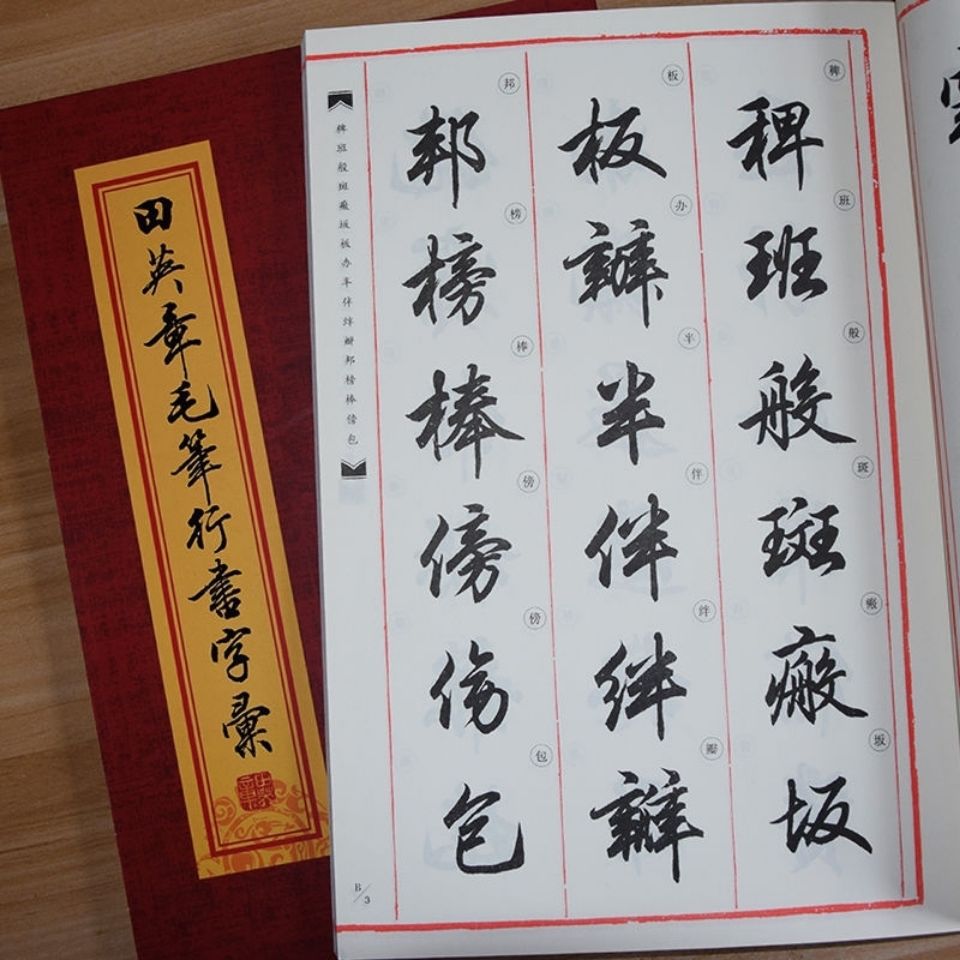 田英章毛筆行書字彙
稗班般斑瘢坂板办半伴绊瓣邦榜棒傍包
稗班般斑瘢坂
稗班般斑瘢坂
板办半伴绊瓣
板辦半伴絆瓣
邦榜棒傍傍包
邦榜棒傍傍包
B/3